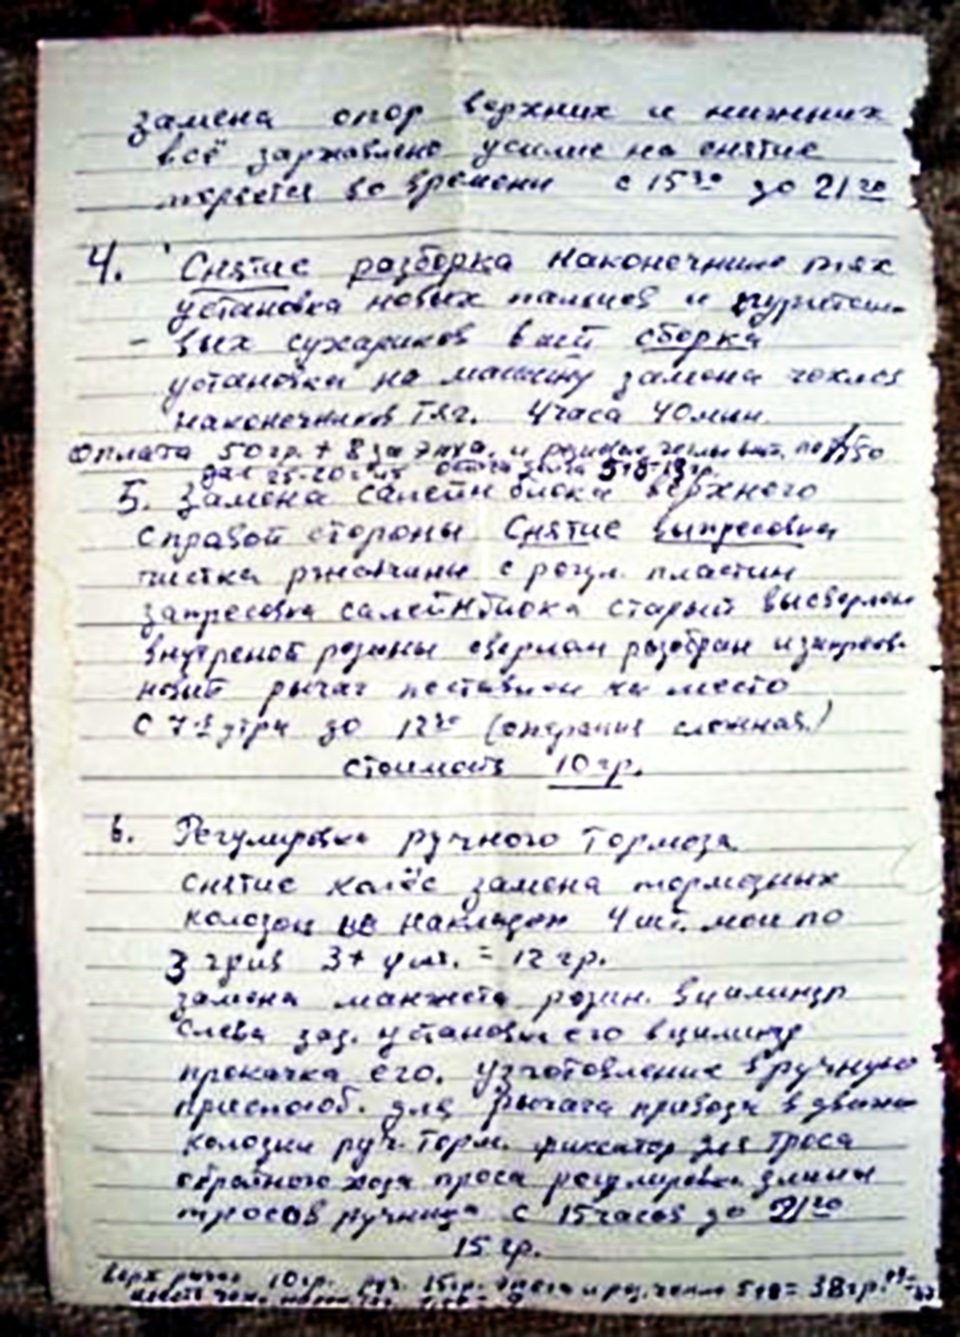 замена опор верхних и нижних
всё заржавлено усилие на снятие
во времени с 15³⁰ до 21²⁰
4. Снятие разборка наконечников тяг
установка новых пальцев и
вых сухариков в ней сборка
установка на машину замена чохлов
наконечников тяг. 4 часа 40 мин.
Оплата 50 гр. + 8 за
25-20
5. Замена салейнблока верхнего
с правой стороны Снятие выпресовка
чистка ржавчины с регул. пластин
запресовка салейнблока старый высверлен
внутреной резины сверлом разобран
новый рычаг поставлен на место
с 7 утра до 12³⁰ (операция сложная)
стоимость 10 гр.
6. Регулировка ручного тормоза
снятие колёс замена тормозных
колодок накладок 4 шт. мои по
3 грив 3+ 4 шт. = 12 гр.
замена манжета резин. в цилиндр
слева зад. установка его в цилиндр
прокачка его. изготовление вручную
приспособ. для рычага привода
колодки руч. торм. фиксатор для троса
обратного хода троса регулировка длины
тросов ручника с 15 часов до 21²⁰
15 гр.
Верх рычаг 10 гр. руч. 15 гр. 5+8= 38 гр.